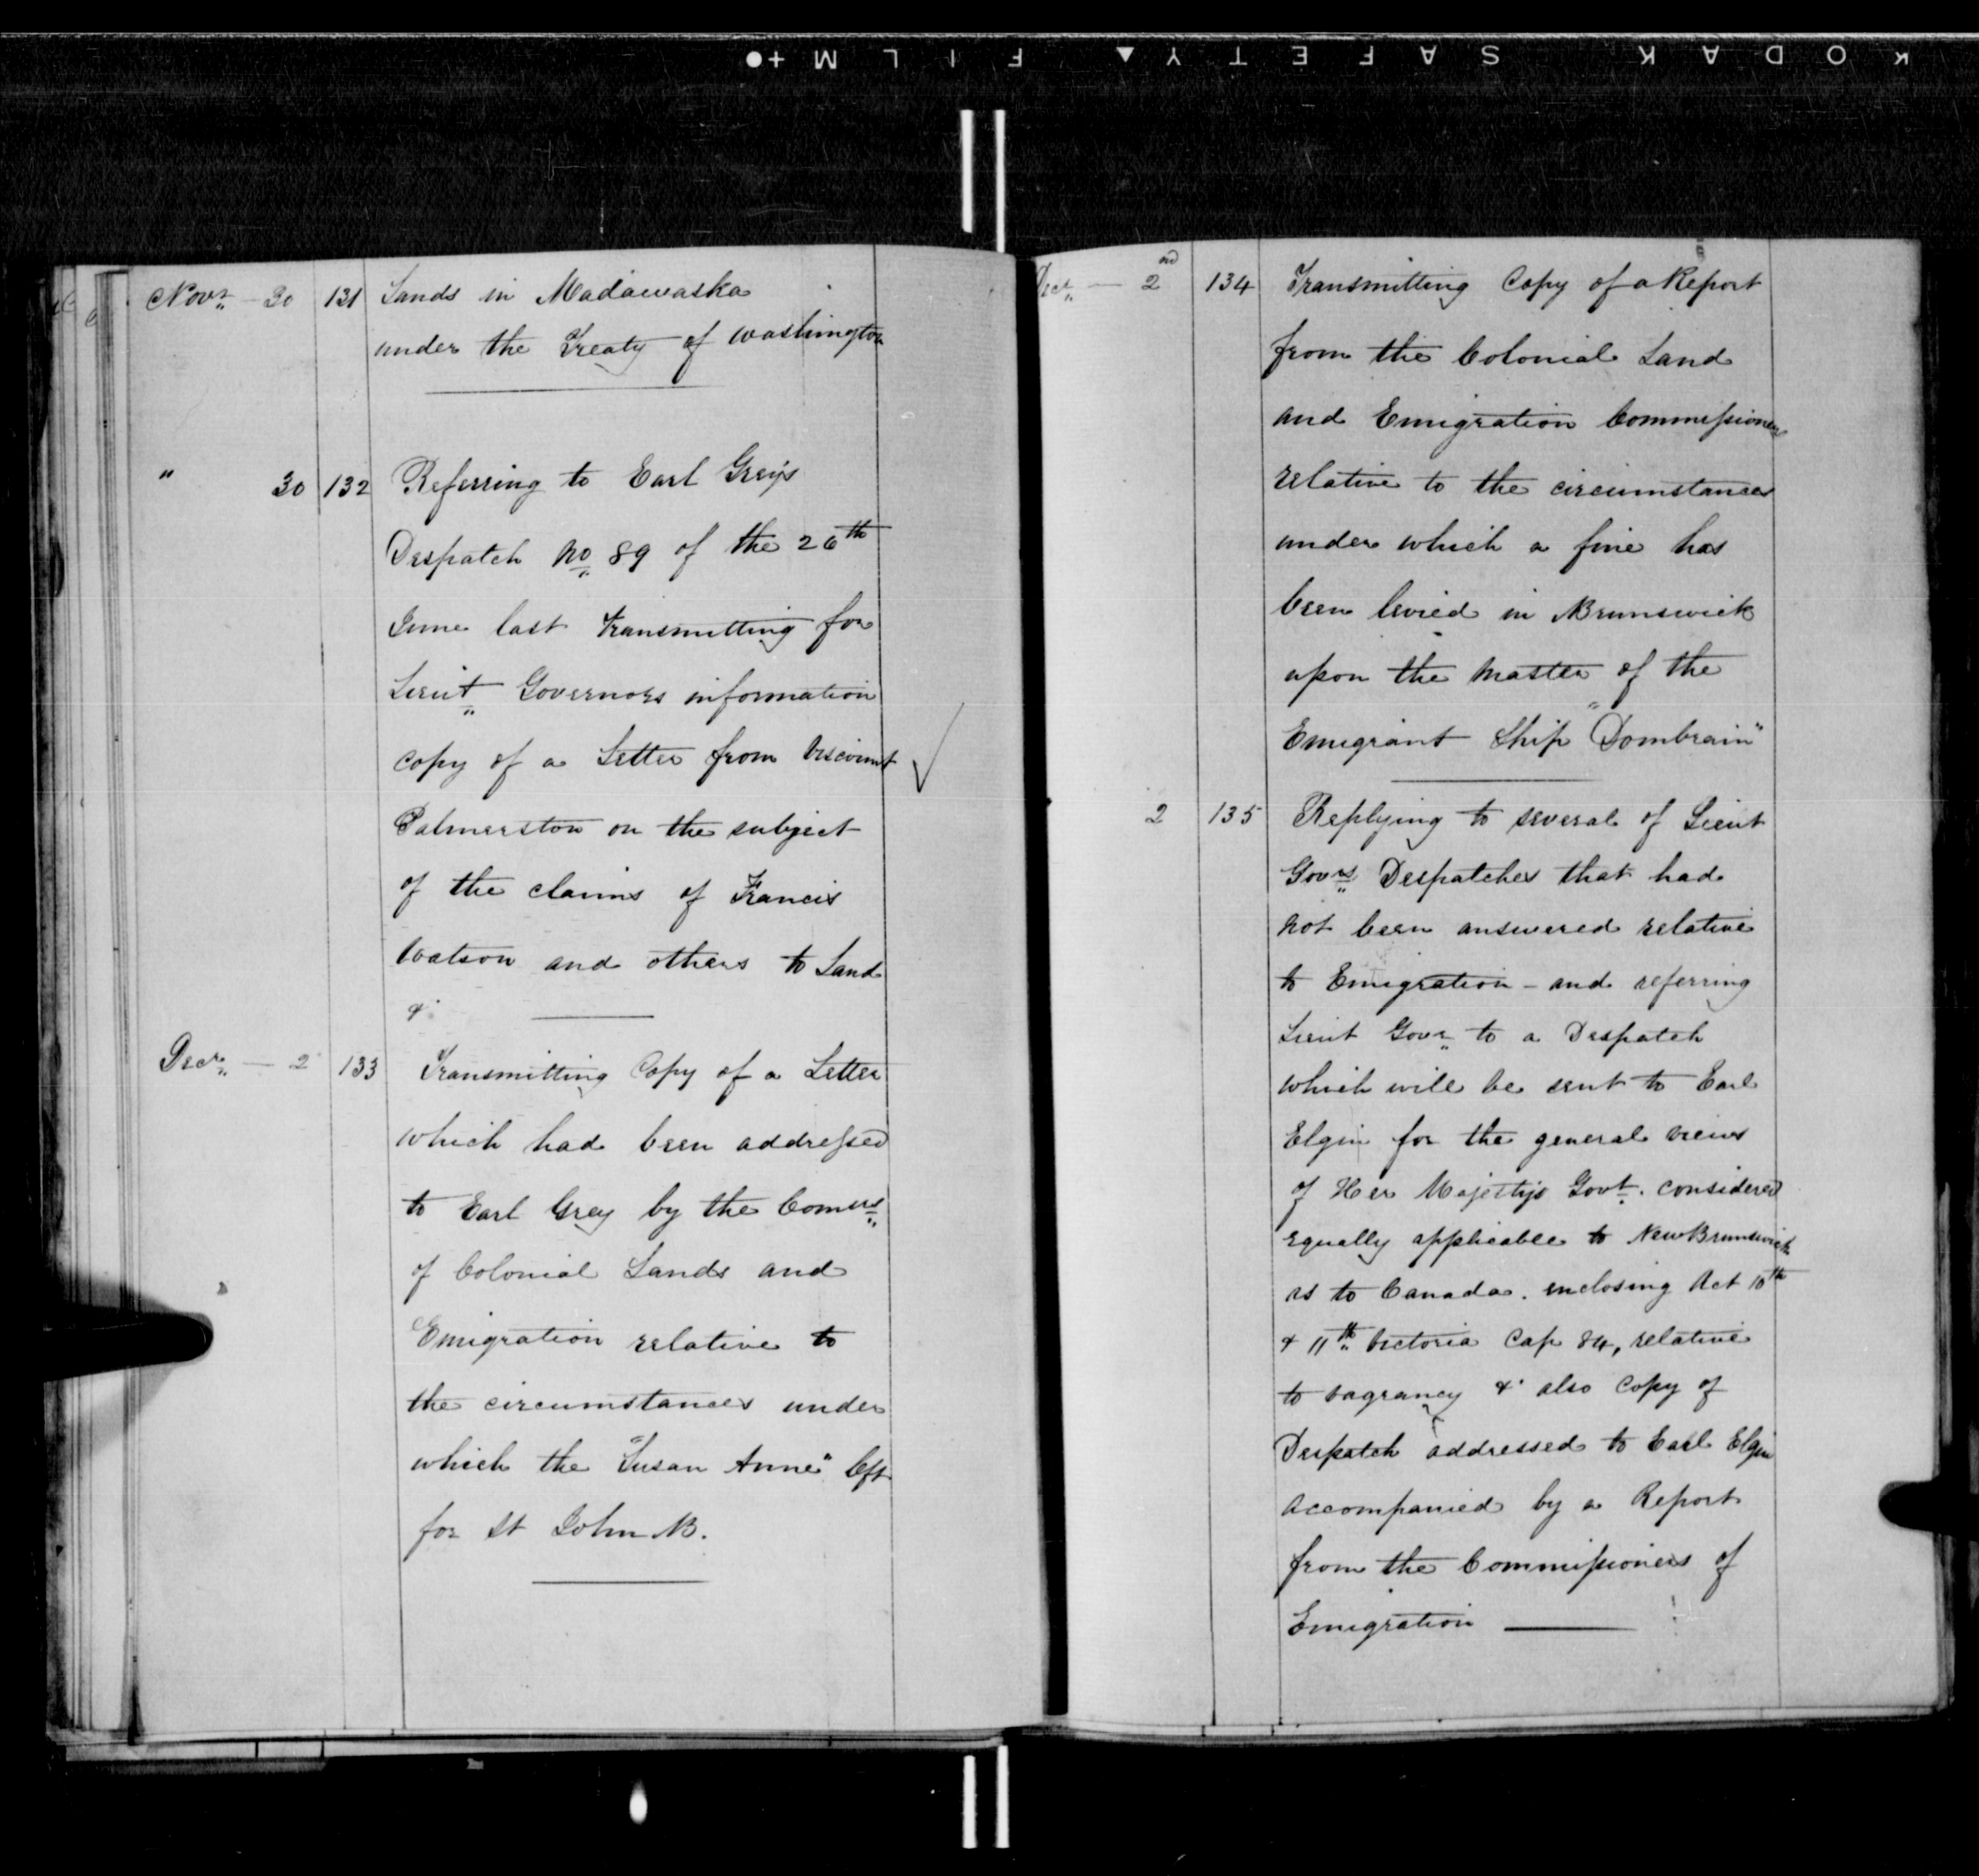 KODAK SAFETY ▲ FILM +●
Novr 30 131 Lands in Madawaska
under the Treaty of Washington
" 30 132 Referring to Earl Greys
Despatch No 89 of the 26th
June last transmitting for
Lieut Governors information
copy of a Letter from Viscount
Palmerston on the subject
of the claims of Francis
Watson and others to Land
&c
Decr — 2 133 Transmitting Copy of a Letter
which had been addressed
to Earl Grey by the Comrs
of Colonial Lands and
Emigration relative to
the circumstances under
which the "Susan Anne" left
for St John NB.
Decr — 2nd 134 Transmitting Copy of a Report
from the Colonial Land
and Emigration Commissioners
relative to the circumstances
under which a fine has
been levied in NBrunswick
upon the Master of the
Emigrant Ship "Dombrain"
2 135 Replying to several of Lieut
Govrs Despatches that had
not been answered relative
to Emigration - and referring
Lieut Govr to a Despatch
which will be sent to Earl
Elgin for the general views
of Her Majestys Govt. considered
equally applicable to New Brunswick
as to Canada. enclosing Act 10th
& 11th Victoria Cap 84, relative
to vagrancy &c also Copy of
Despatch addressed to Earl Elgin
accompanied by a Report
from the Commissioners of
Emigration